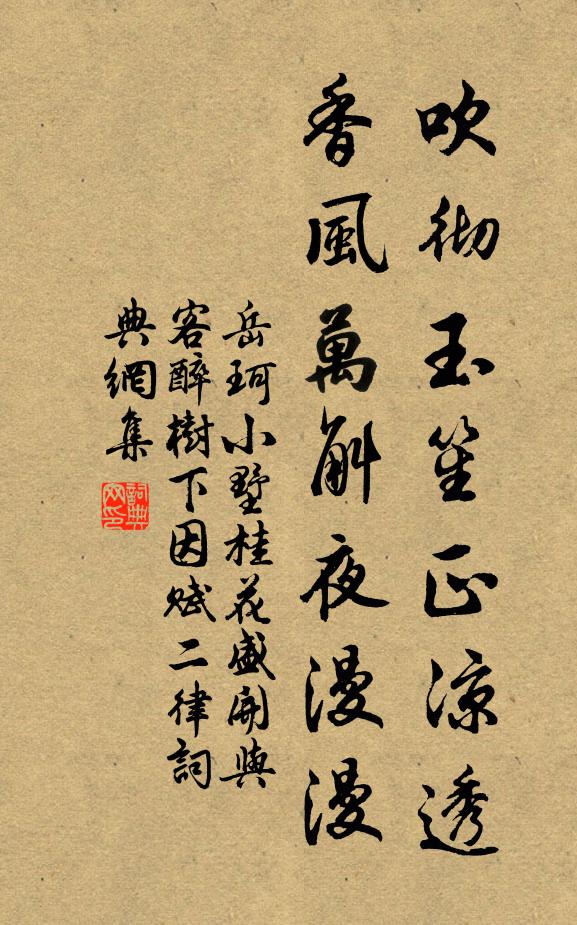 吹彻玉笙正凉透
香風萬斛夜漫漫
岳珂小墅桂花盛開與
客醉樹下因賦二律詞
典網集
詞典
网印